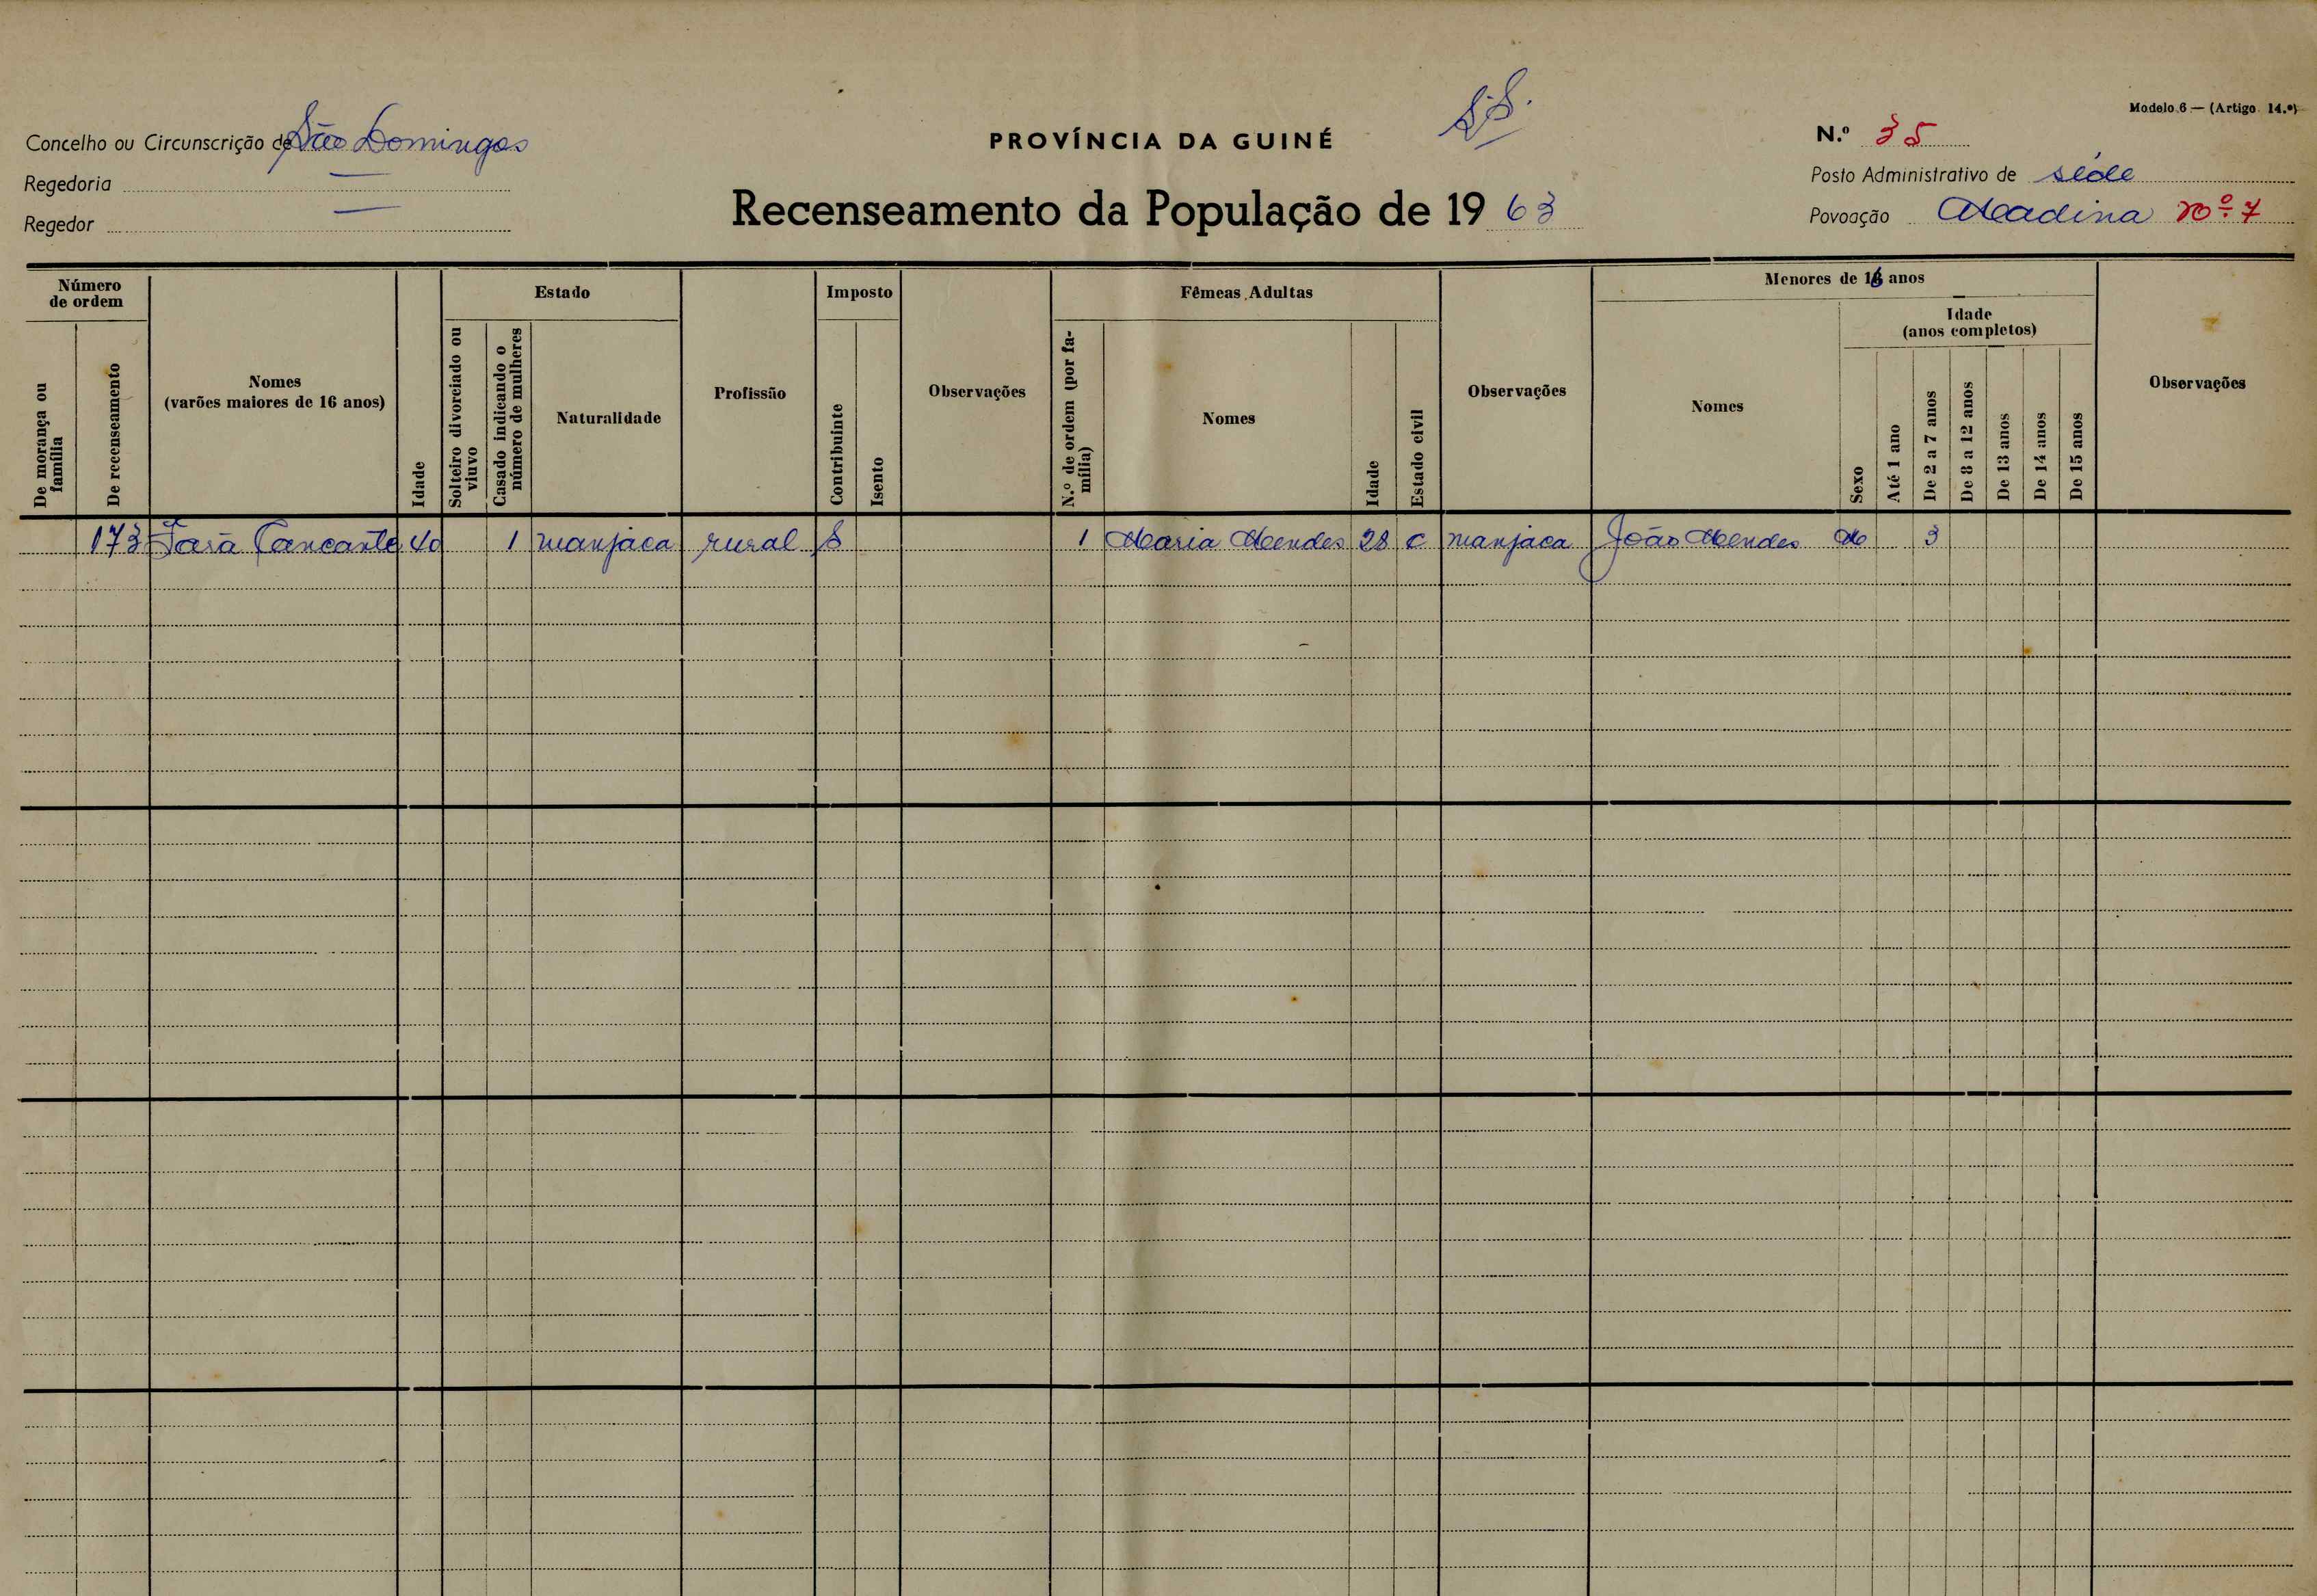 Modelo 6 — (Artigo 14.º)
Concelho ou Circunscrição de São Domingos
PROVÍNCIA DA GUINÉ
S.S.
N.º 35
Regedoria —
Posto Administrativo de séde
Regedor —
Recenseamento da População de 19 63
Povoação Madina nº 7
Número de ordem
De morança ou família
De recenseamento
Nomes
(varões maiores de 16 anos)
Idade
Estado
Solteiro divorciado ou viuvo
Casado indicando o número de mulheres
Naturalidade
Profissão
Imposto
Contribuinte
Isento
Observações
Fêmeas Adultas
N.º de ordem (por família)
Nomes
Idade
Estado civil
Observações
Menores de 16 anos
Nomes
Sexo
Idade
(anos completos)
Até 1 ano
De 2 a 7 anos
De 8 a 12 anos
De 13 anos
De 14 anos
De 15 anos
Observações
173 40 1 manjaca rural S 1 Maria Mendes 28 c manjaca João Mendes M 3